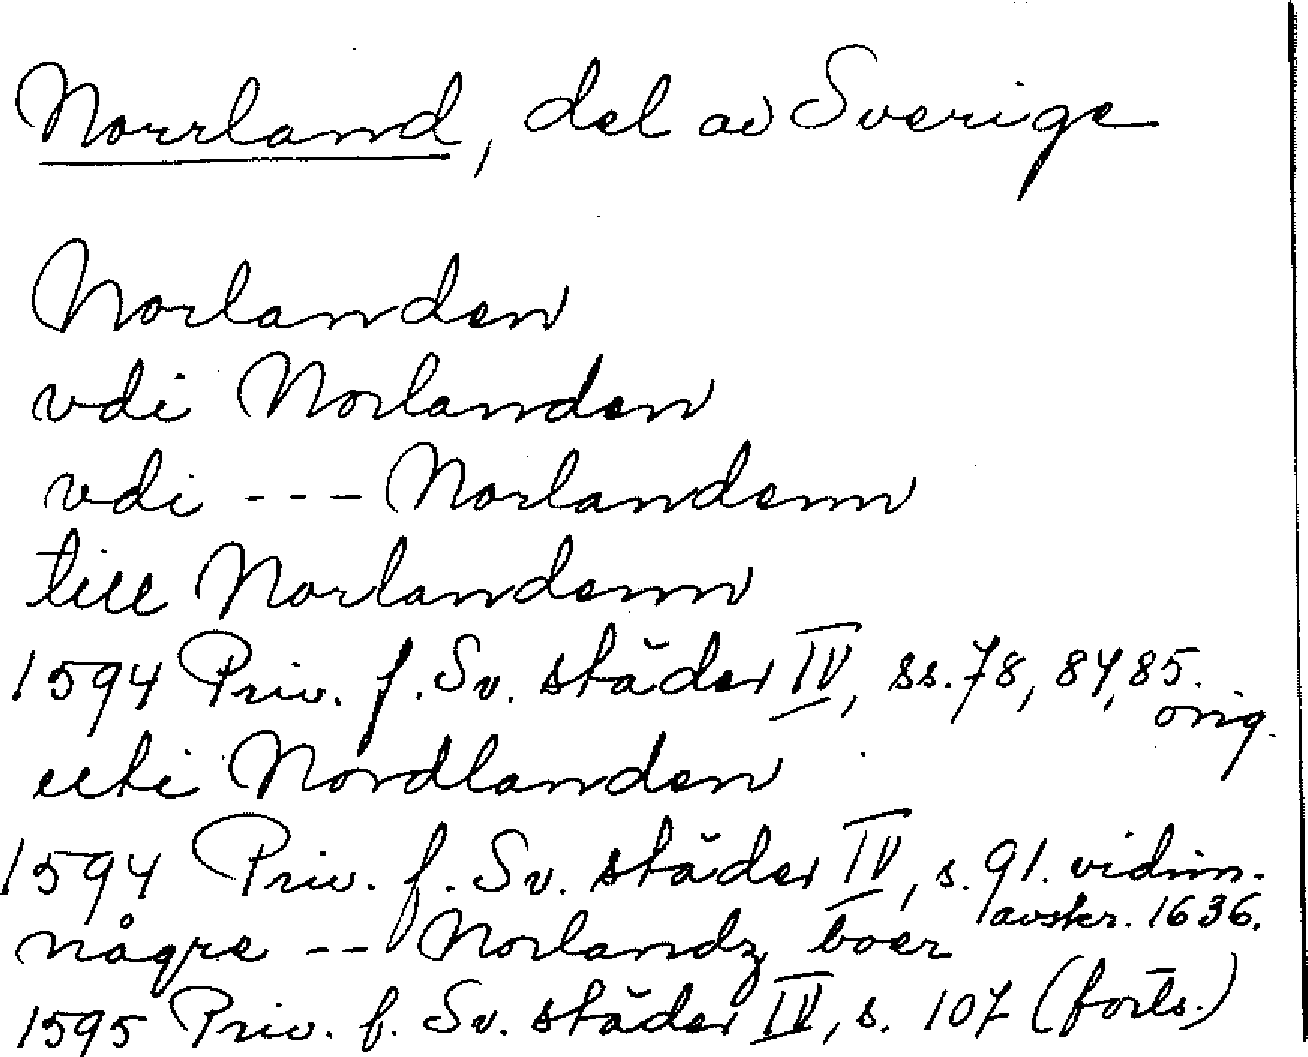 Norrland, del av Sverige
Norlanden
vdi Norlanden
vdi --- Norlandenn
till Norlandenn
1594 Priv. f. Sv. städer IV, ss. 78, 84, 85.
orig.
uti Nordlanden
1594 Priv. f. Sv. städer IV, s. 91. vidim.
avskr. 1636.
någre -- Norlandz boer
1595 Priv. f. Sv. städer IV, s. 107 (forts.)